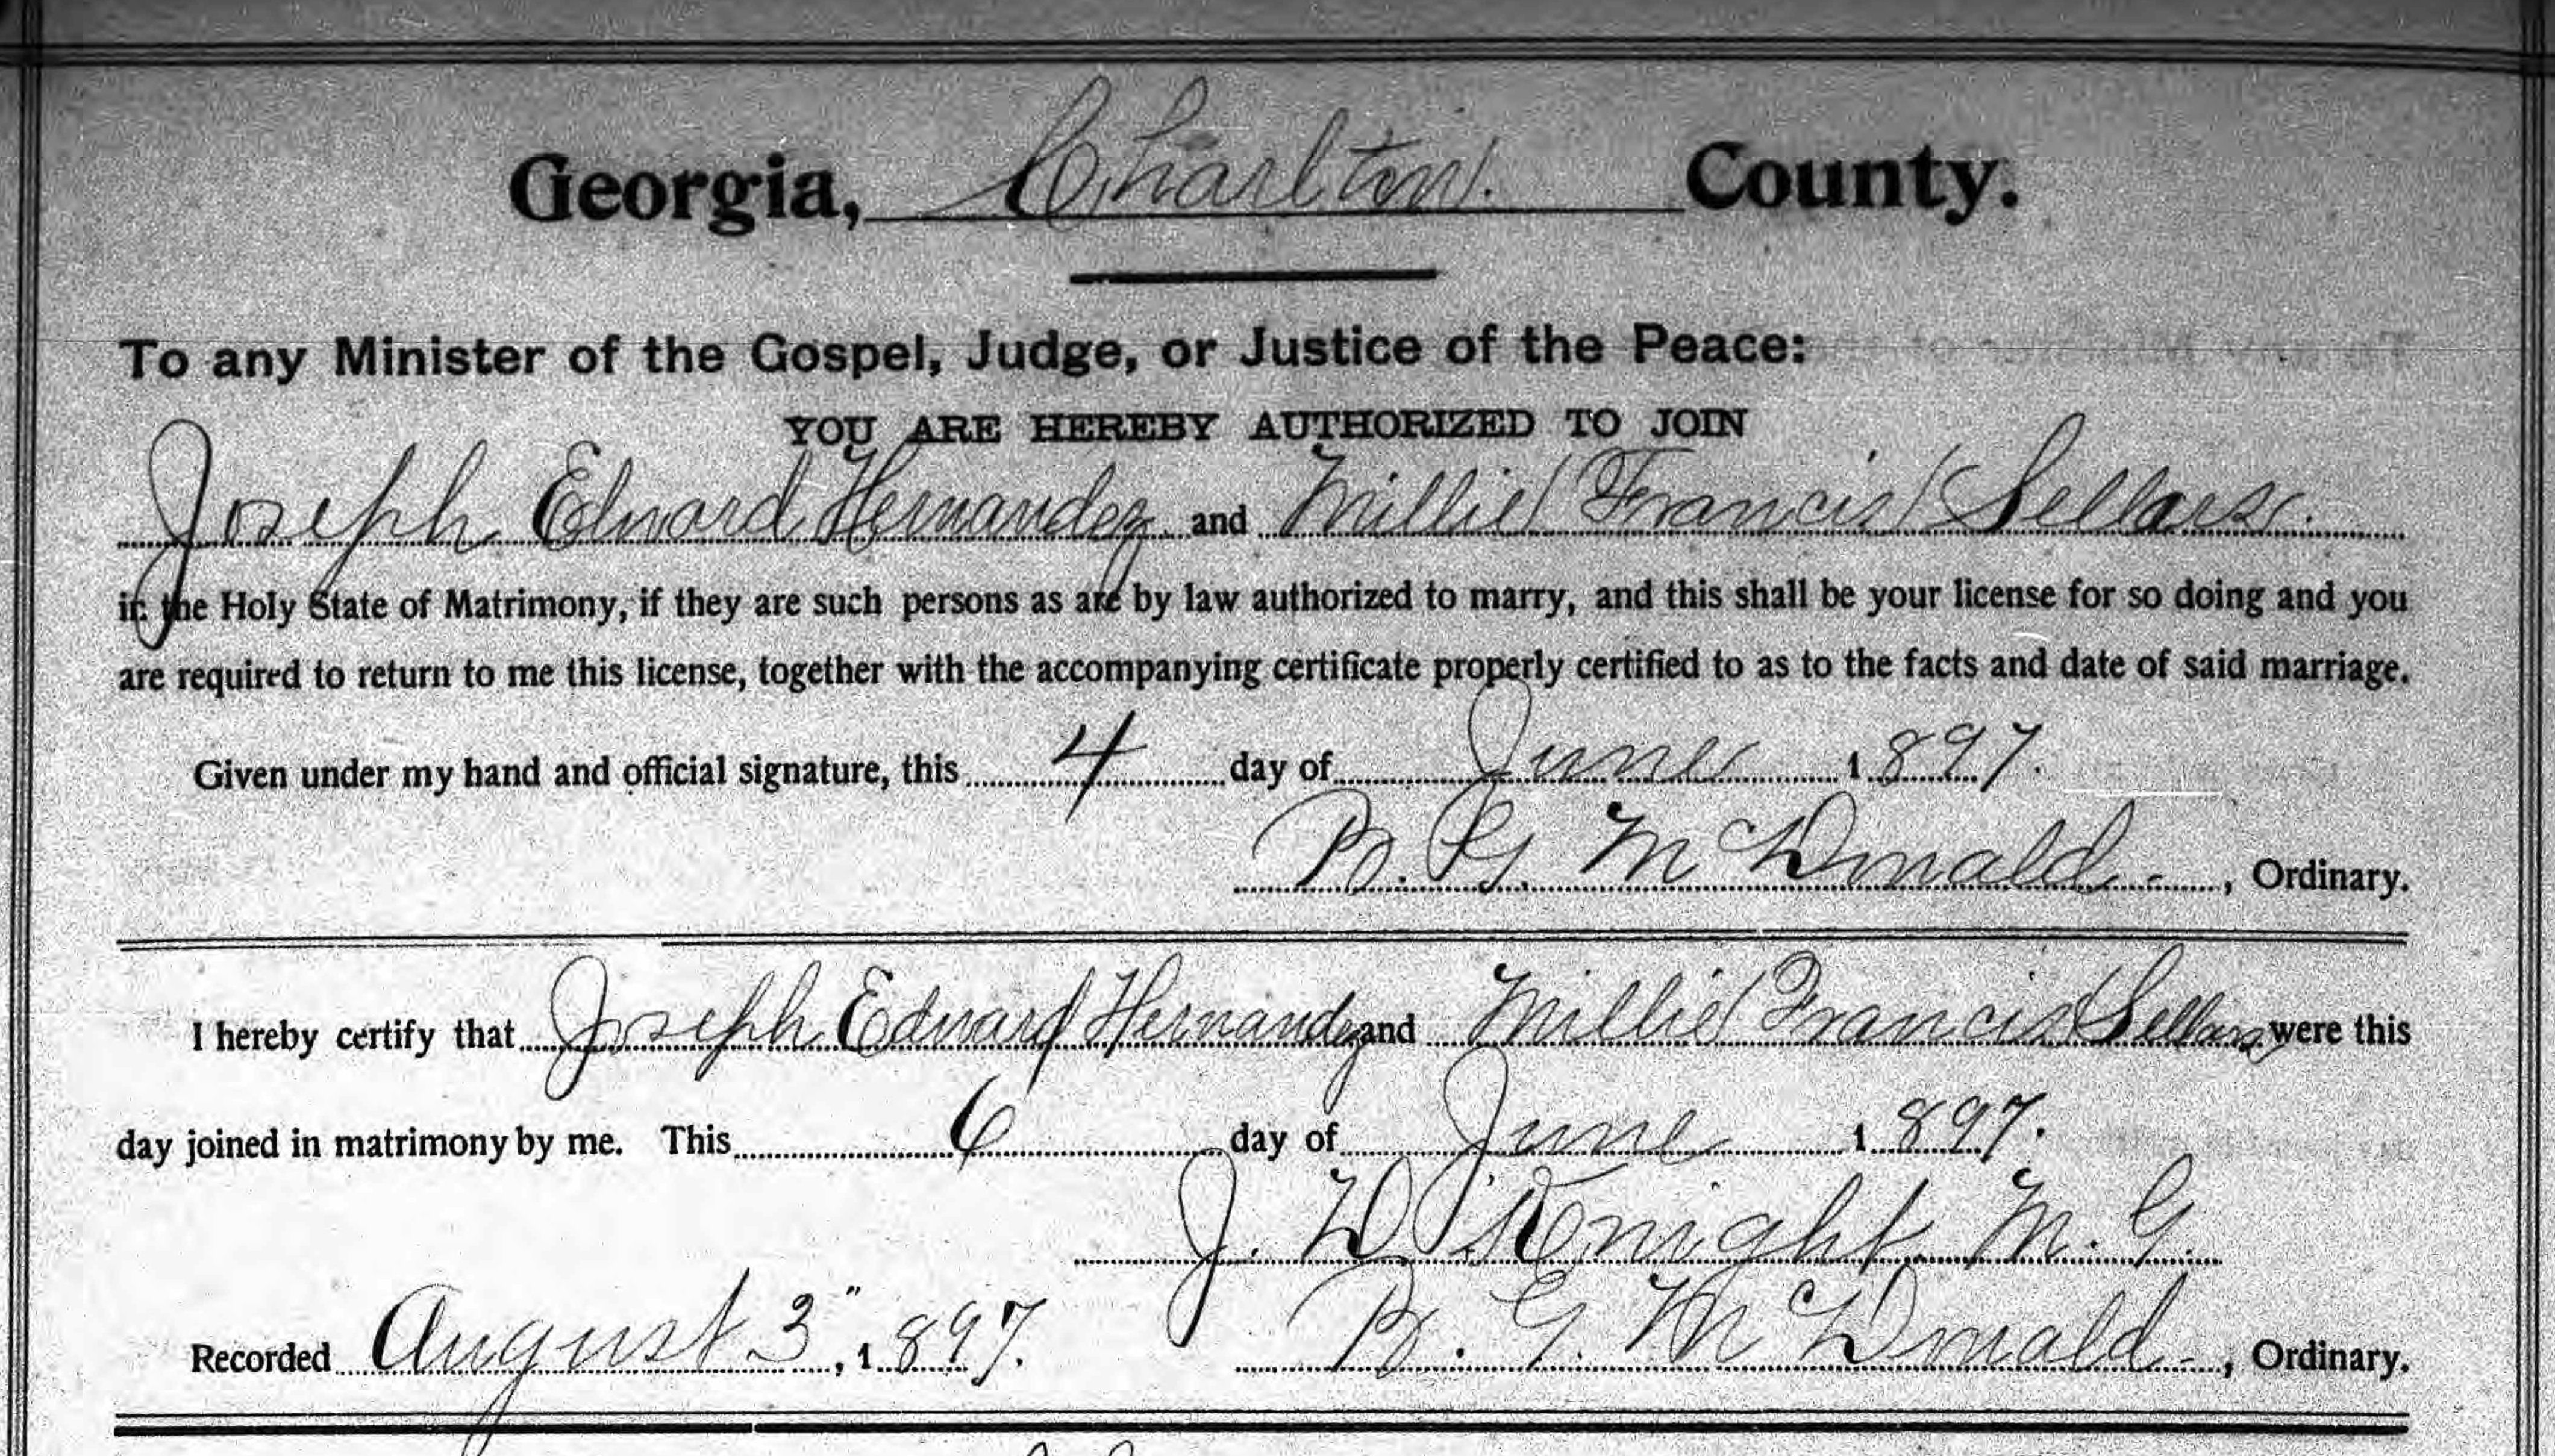 Georgia, Charlton. County.
To any Minister of the Gospel, Judge, or Justice of the Peace:
YOU ARE HEREBY AUTHORIZED TO JOIN
Joseph Edward Hernandez and Millie Francis Sellars.
in the Holy State of Matrimony, if they are such persons as are by law authorized to marry, and this shall be your license for so doing and you
are required to return to me this license, together with the accompanying certificate properly certified to as to the facts and date of said marriage.
Given under my hand and official signature, this 4 day of June 1897.
B. G. McDonald, Ordinary.
I hereby certify that Joseph Edward Hernandez and Millie Francis Sellars were this
day joined in matrimony by me. This 6 day of June 1897.
J. D. Knight M. G.
Recorded August 3", 1897. B. G. McDonald, Ordinary.